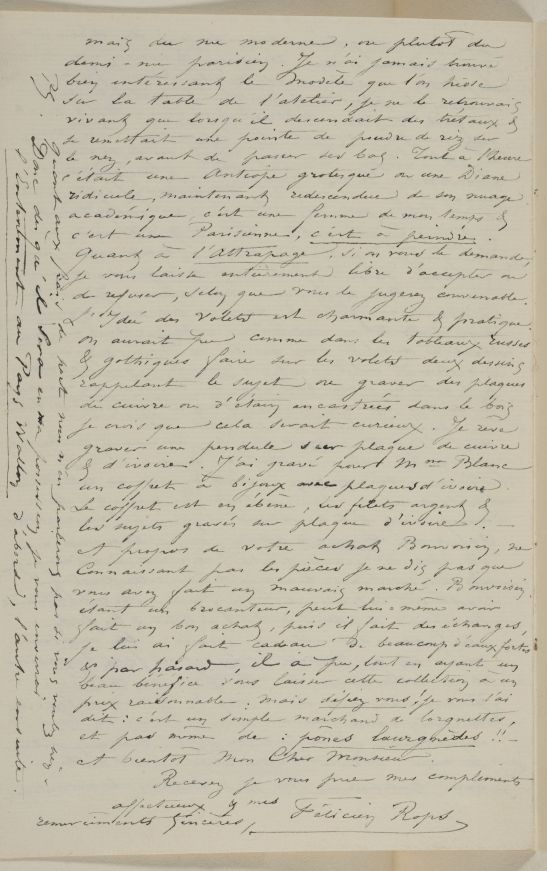 mais du nu moderne, ou plutôt du
demi-nu parisien. Je n'ai jamais trouvé
bien intéressant le modèle que l'on hisse
sur la table de l'atelier, je ne le retrouvais
vivant que lorsqu'il descendait des tréteaux &
se remettait une pointe de poudre de riz sur
le nez, avant de passer ses bas. Tout à l'heure
c'était une Antiope grotesque ou une Diane
ridicule, maintenant redescendue de son nuage
académique, c'est une femme de mon temps &
c'est une Parisienne, c'est à peindre.
Quant à l'Attrapage, si on vous le demande,
je vous laisse entièrement libre d'accepter ou
de refuser, selon que vous le jugerez convenable.
L'Idée des volets est charmante & pratique.
on aurait pu comme dans les tableaux russes
& gothiques faire sur les volets deux dessins
rappelant le sujet ou graver des plaques
de cuivre ou d'étain encastrées dans le bois
je crois que cela serait curieux. Je rêve
graver une pendule sur plaque de cuivre
& d'ivoire. J'ai gravé pour Mme Blanc
un coffret à bijoux avec plaques d'ivoire
Le coffret est en ébène, les filets argent &
les sujets gravés sur plaque d'ivoire. –
A propos de votre achat Bonvoisin, ne
connaissant pas les pièces je ne dis pas que
vous avez fait un mauvais marché. Bonvoisin
étant un brocanteur, peut lui-même avoir
fait un bon achat, puis il fait des échanges,
je lui ai fait cadeau de beaucoup d'eaux fortes
& par hasard, il a pu, tout en ayant un
beau bénéfice vous laisser cette collection à un
prix raisonnable. Mais je vous l'ai
dit: c'est un simple marchand de lorgnettes,
et pas même de: !! –
A bientôt Mon Cher Monsieur.
Recevez je vous prie mes compliments
affectueux & mes
remerciments sincères, Félicien Rops
Quant aux frais de port nous n'en parlerons pas si vous voulez bien
Donc dès qu'il sera en ma possession je vous enverrai
l'Enterrement au Pays Wallon d'abord, l'autre ensuite.